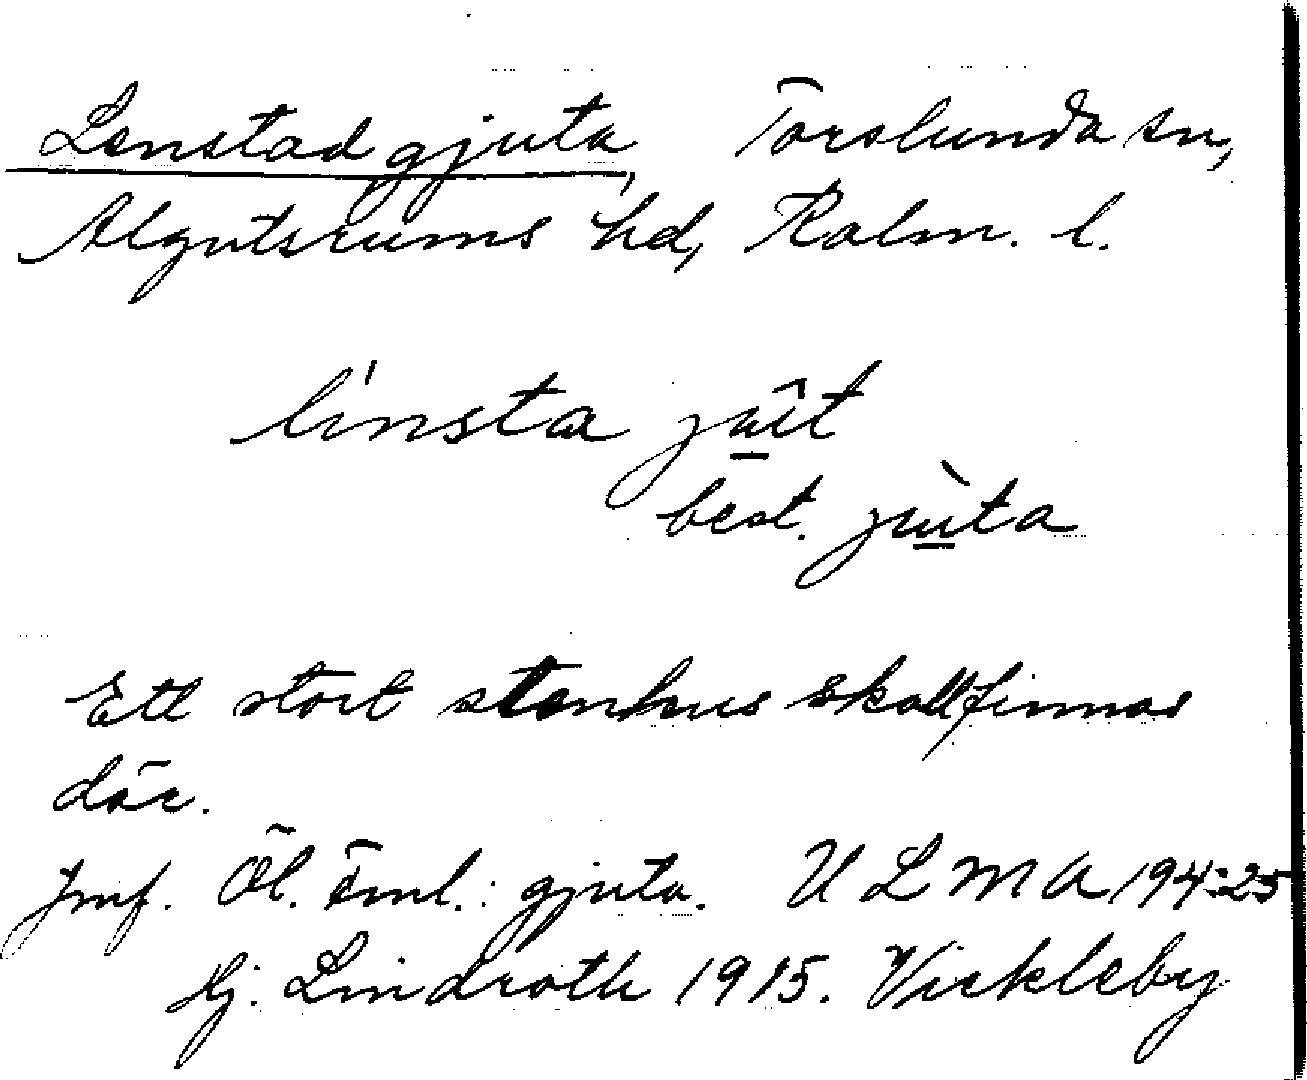 Lenstad gjuta, Torslunda sn,
Algutsrums hd, Kalm. l.
línsta ju̲ît
best. ju̲ìta
Ett stort stenhus skall finnas
där.
Jmf. Öl. Äml.: gjuta. ULMA 194:25
Hj. Lindroth 1915. Vickleby